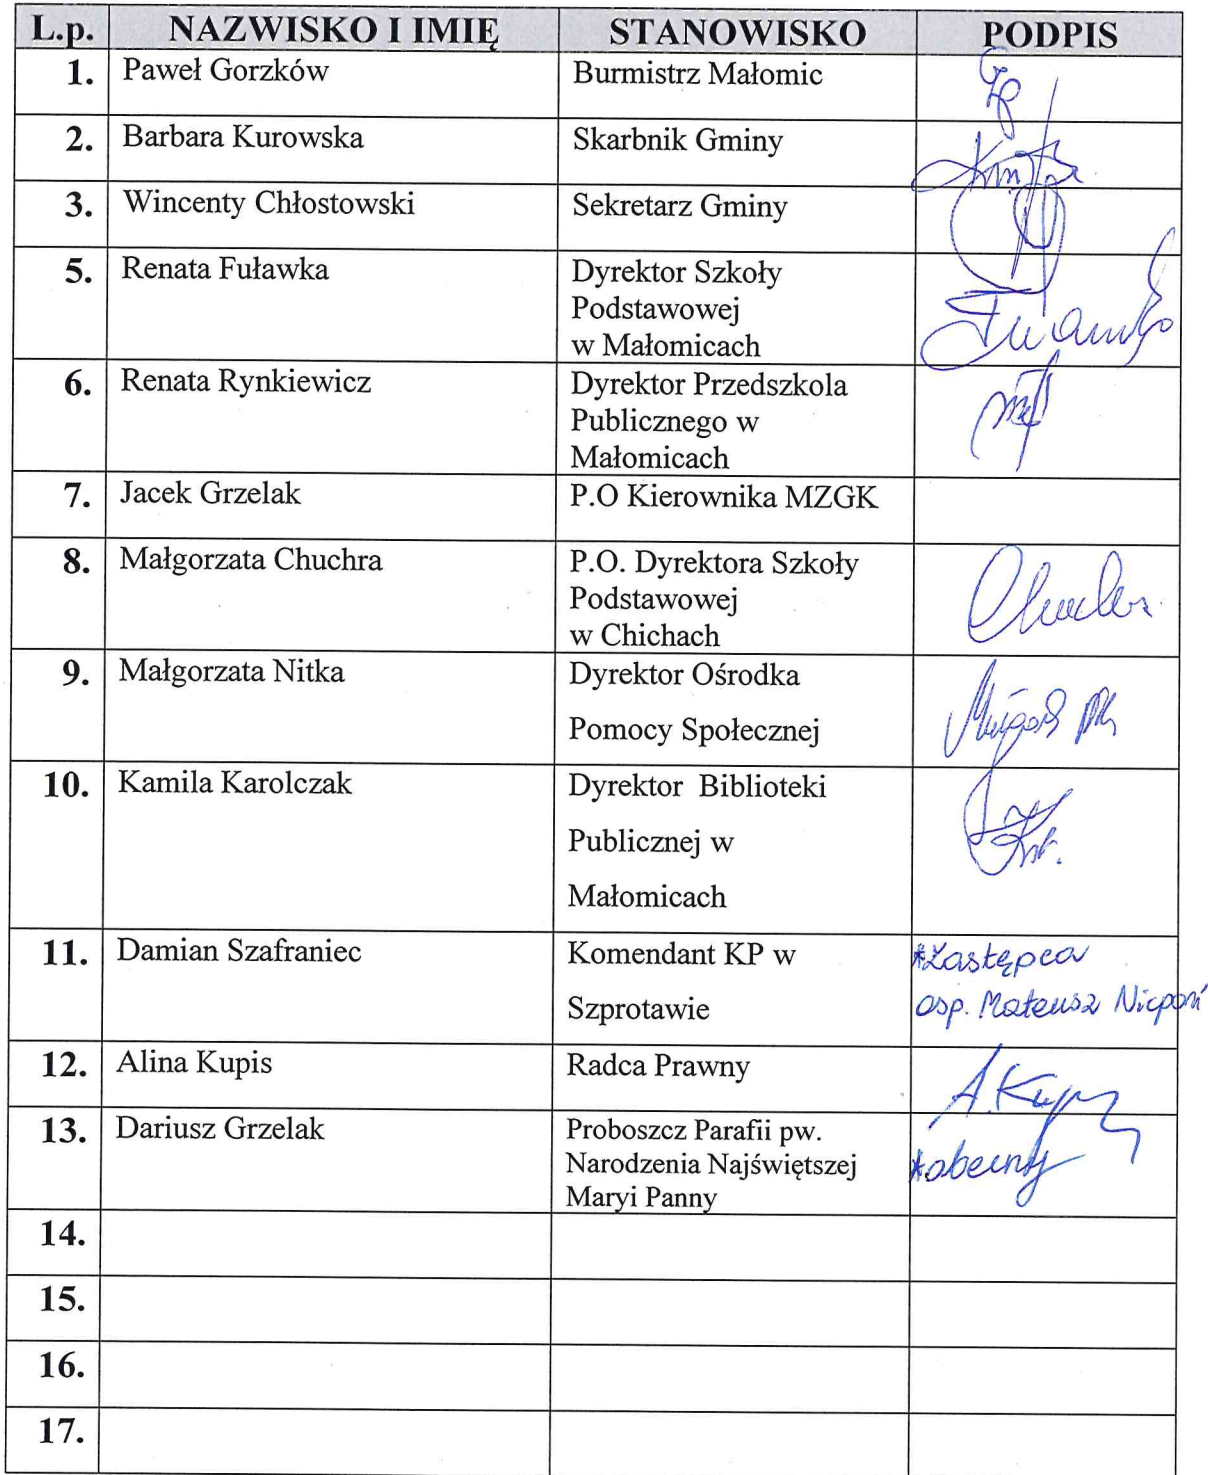 L.p. NAZWISKO I IMIĘ STANOWISKO PODPIS
1. Paweł Gorzków Burmistrz Małomic
2. Barbara Kurowska Skarbnik Gminy
3. Wincenty Chłostowski Sekretarz Gminy
5. Renata Fuławka Dyrektor Szkoły
Podstawowej
w Małomicach
6. Renata Rynkiewicz Dyrektor Przedszkola
Publicznego w
Małomicach
7. Jacek Grzelak P.O Kierownika MZGK
8. Małgorzata Chuchra P.O. Dyrektora Szkoły
Podstawowej
w Chichach
9. Małgorzata Nitka Dyrektor Ośrodka
Pomocy Społecznej
10. Kamila Karolczak Dyrektor Biblioteki
Publicznej w
Małomicach
11. Damian Szafraniec Komendant KP w *Zastępca
Szprotawie asp. Mateusz Nicpoń
12. Alina Kupis Radca Prawny
13. Dariusz Grzelak Proboszcz Parafii pw. *obecny
Narodzenia Najświętszej
Maryi Panny
14.
15.
16.
17.